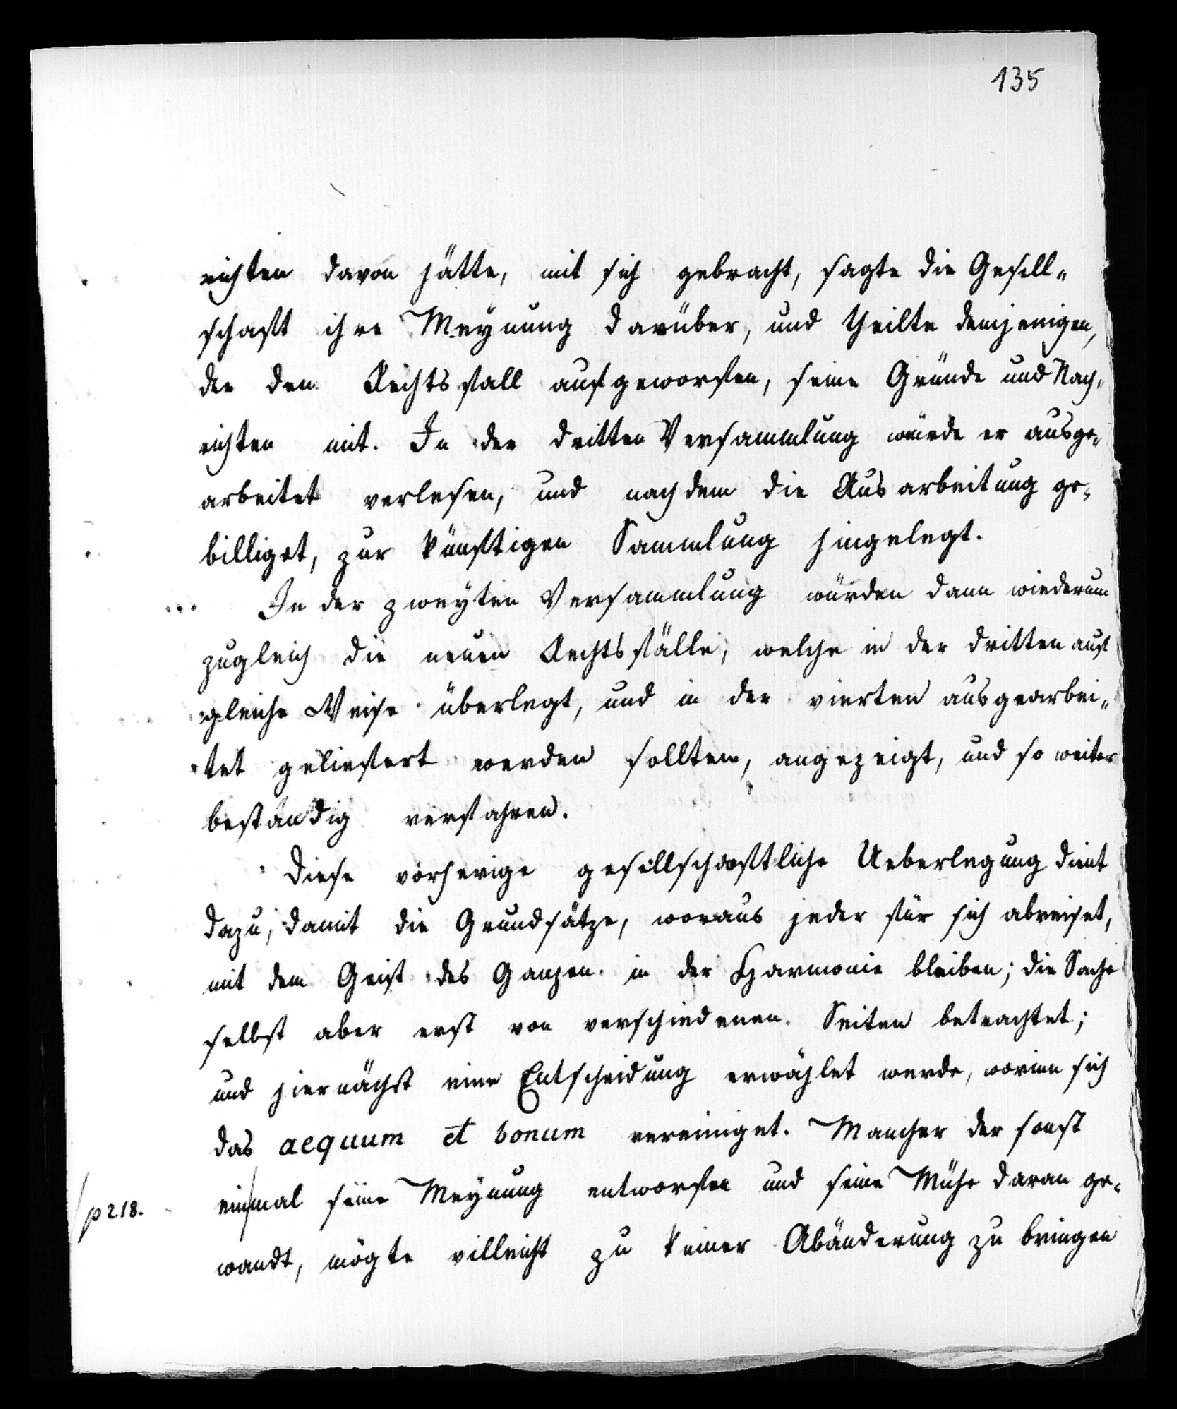 135
richten davon hätte, mit sich gebracht, sagte die Gesell-
schaft ihre Meynung darüber, und theilte demjenigen,
der den Rechtsfall aufgeworfen, seine Gründe und Nach-
richten mit. In der dritten Versammlung würde er ausge-
arbeitet verlesen, und nachdem die Ausarbeitung ge-
billiget, zur künftigen Sammlung hingelegt.
In der zweyten Versammlung würden dann wiederum
zugleich die neuen Rechtsfälle, welche in der dritten auf
gleiche Weise überlegt, und in der vierten ausgearbei-
tet geliefert werden sollten, angezeigt, und so weiter
beständig verfahren.
Diese vorherige gesellschaftliche Ueberlegung dient
dazu, damit die Grundsätze, woraus jeder für sich abreiset,
mit dem Geist des Ganzen in der Harmonie bleiben; die Sache
selbst aber erst von verschiedenen Seiten betrachtet;
und hiernächst eine Entscheidung erwählet werde, worinn sich
das aequum et bonum vereiniget. Mancher der sonst
einmal seine Meynung entworfen und seine Mühe daran ge-
p 218.
wandt, mögte villeicht zu keiner Abänderung zu bringen